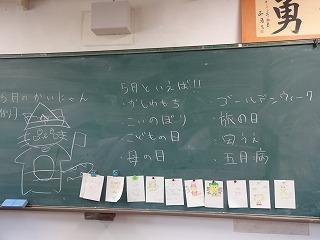 勇
5月のかいにゃん
例]
5月といえば!!
・かしわもち
・こいのぼり
・こどもの日
・母の日
・ゴールデンウィーク
・旅の日
・田うえ
・五月病